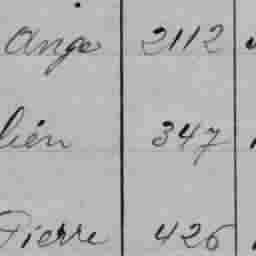 Ange 2112
lien 347
Pierre 426